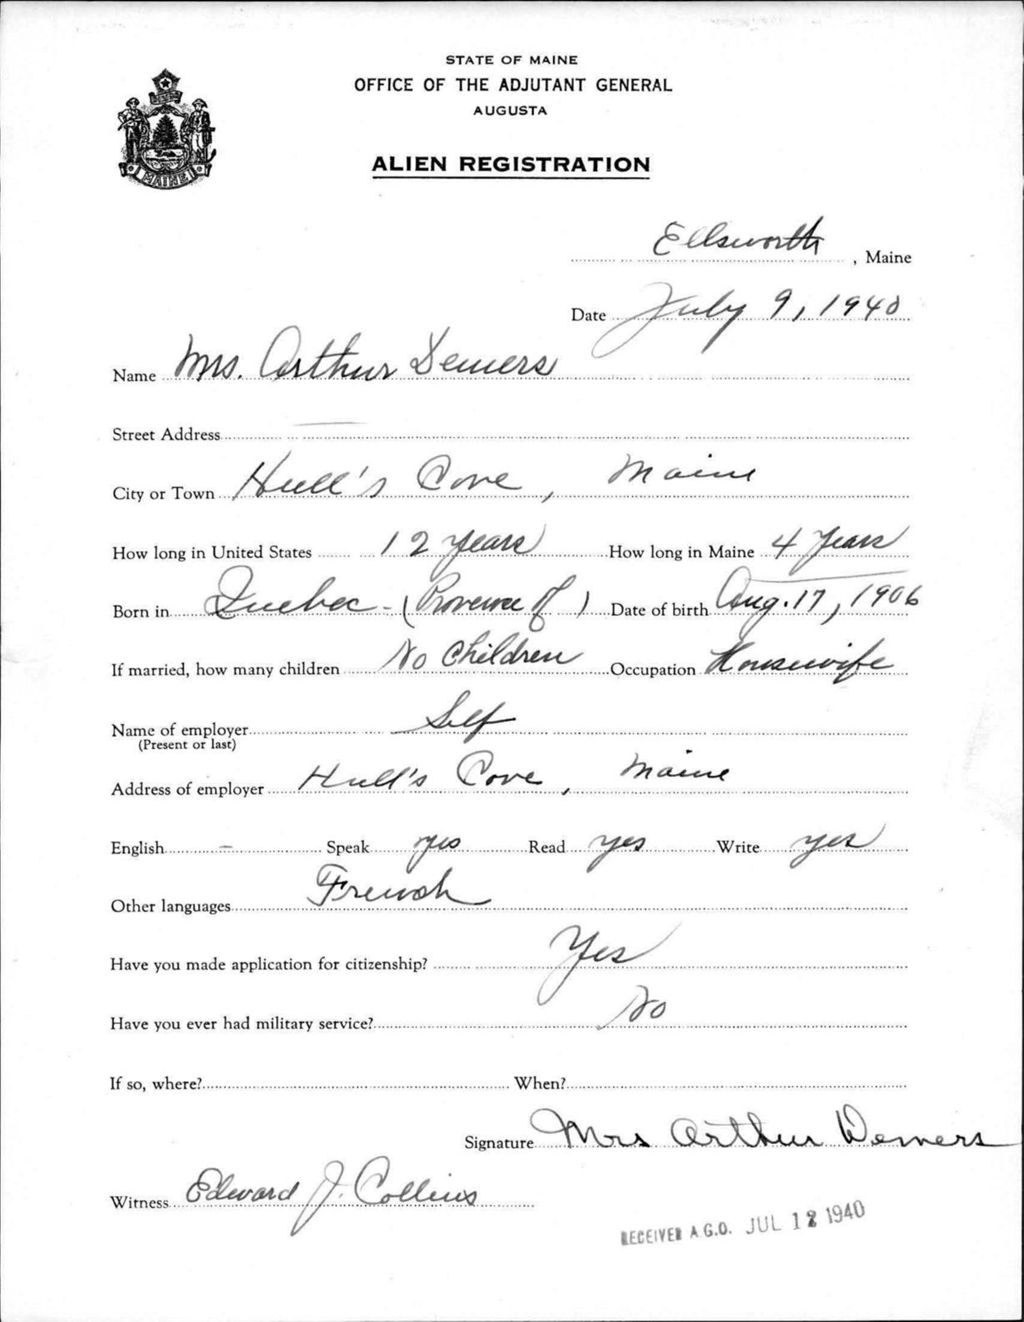 STATE OF MAINE
OFFICE OF THE ADJUTANT GENERAL
AUGUSTA
MAINE
ALIEN REGISTRATION
Ellsworth, Maine
Date July 9, 1940
Name Mrs. Arthur Demers
Street Address —
City or Town Hull's Cove, Maine
How long in United States 12 years How long in Maine 4 years
Born in Quebec - (Province of) Date of birth Aug. 17, 1906
If married, how many children No Children Occupation Housewife
Name of employer Self
(Present or last)
Address of employer Hull's Cove, Maine
English — Speak yes Read yes Write yes
Other languages French
Have you made application for citizenship? Yes
Have you ever had military service? No
If so, where? When?
Signature Mrs Arthur Demers
Witness Edward J. Collins
RECEIVED A.G.O. JUL 12 1940